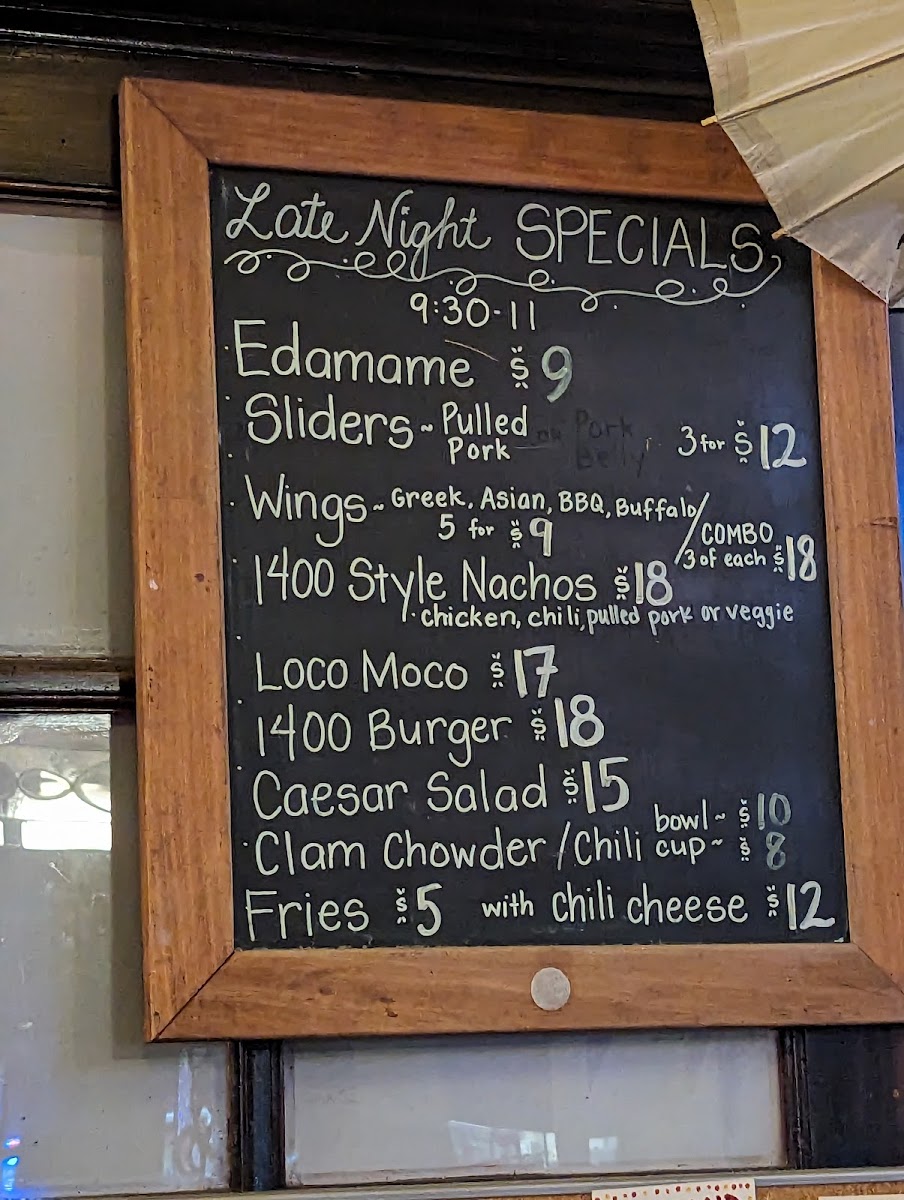 Late Night SPECIALS
9:30-11
Edamame $9
Sliders ~ Pulled Pork or Pork Belly 3 for $12
Wings ~ Greek, Asian, BBQ, Buffalo
5 for $9 / COMBO 3 of each $18
1400 Style Nachos $18
· chicken, chili, pulled pork or veggie
Loco Moco $17
1400 Burger $18
Caesar Salad $15
Clam Chowder / Chili bowl ~ $10
cup ~ $8
Fries $5 with chili cheese $12